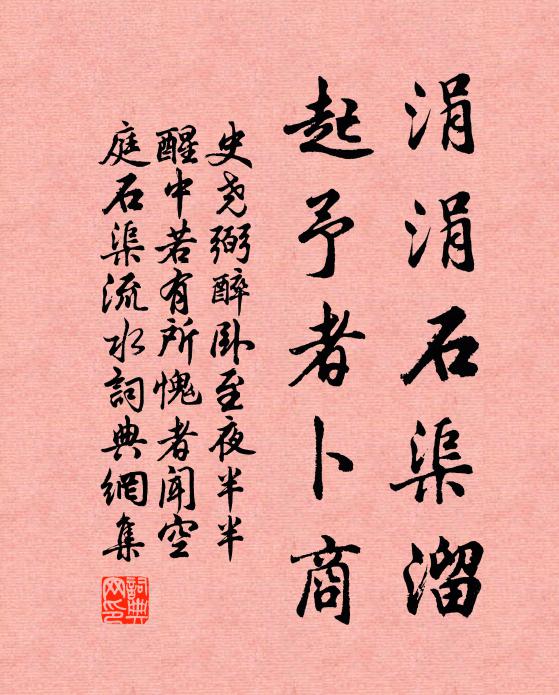 涓涓石渠溜
起予者卜商
史尧弼醉卧至夜半半
醒中若有所愧者闻空
庭石渠流水詞典網集
詞典网印